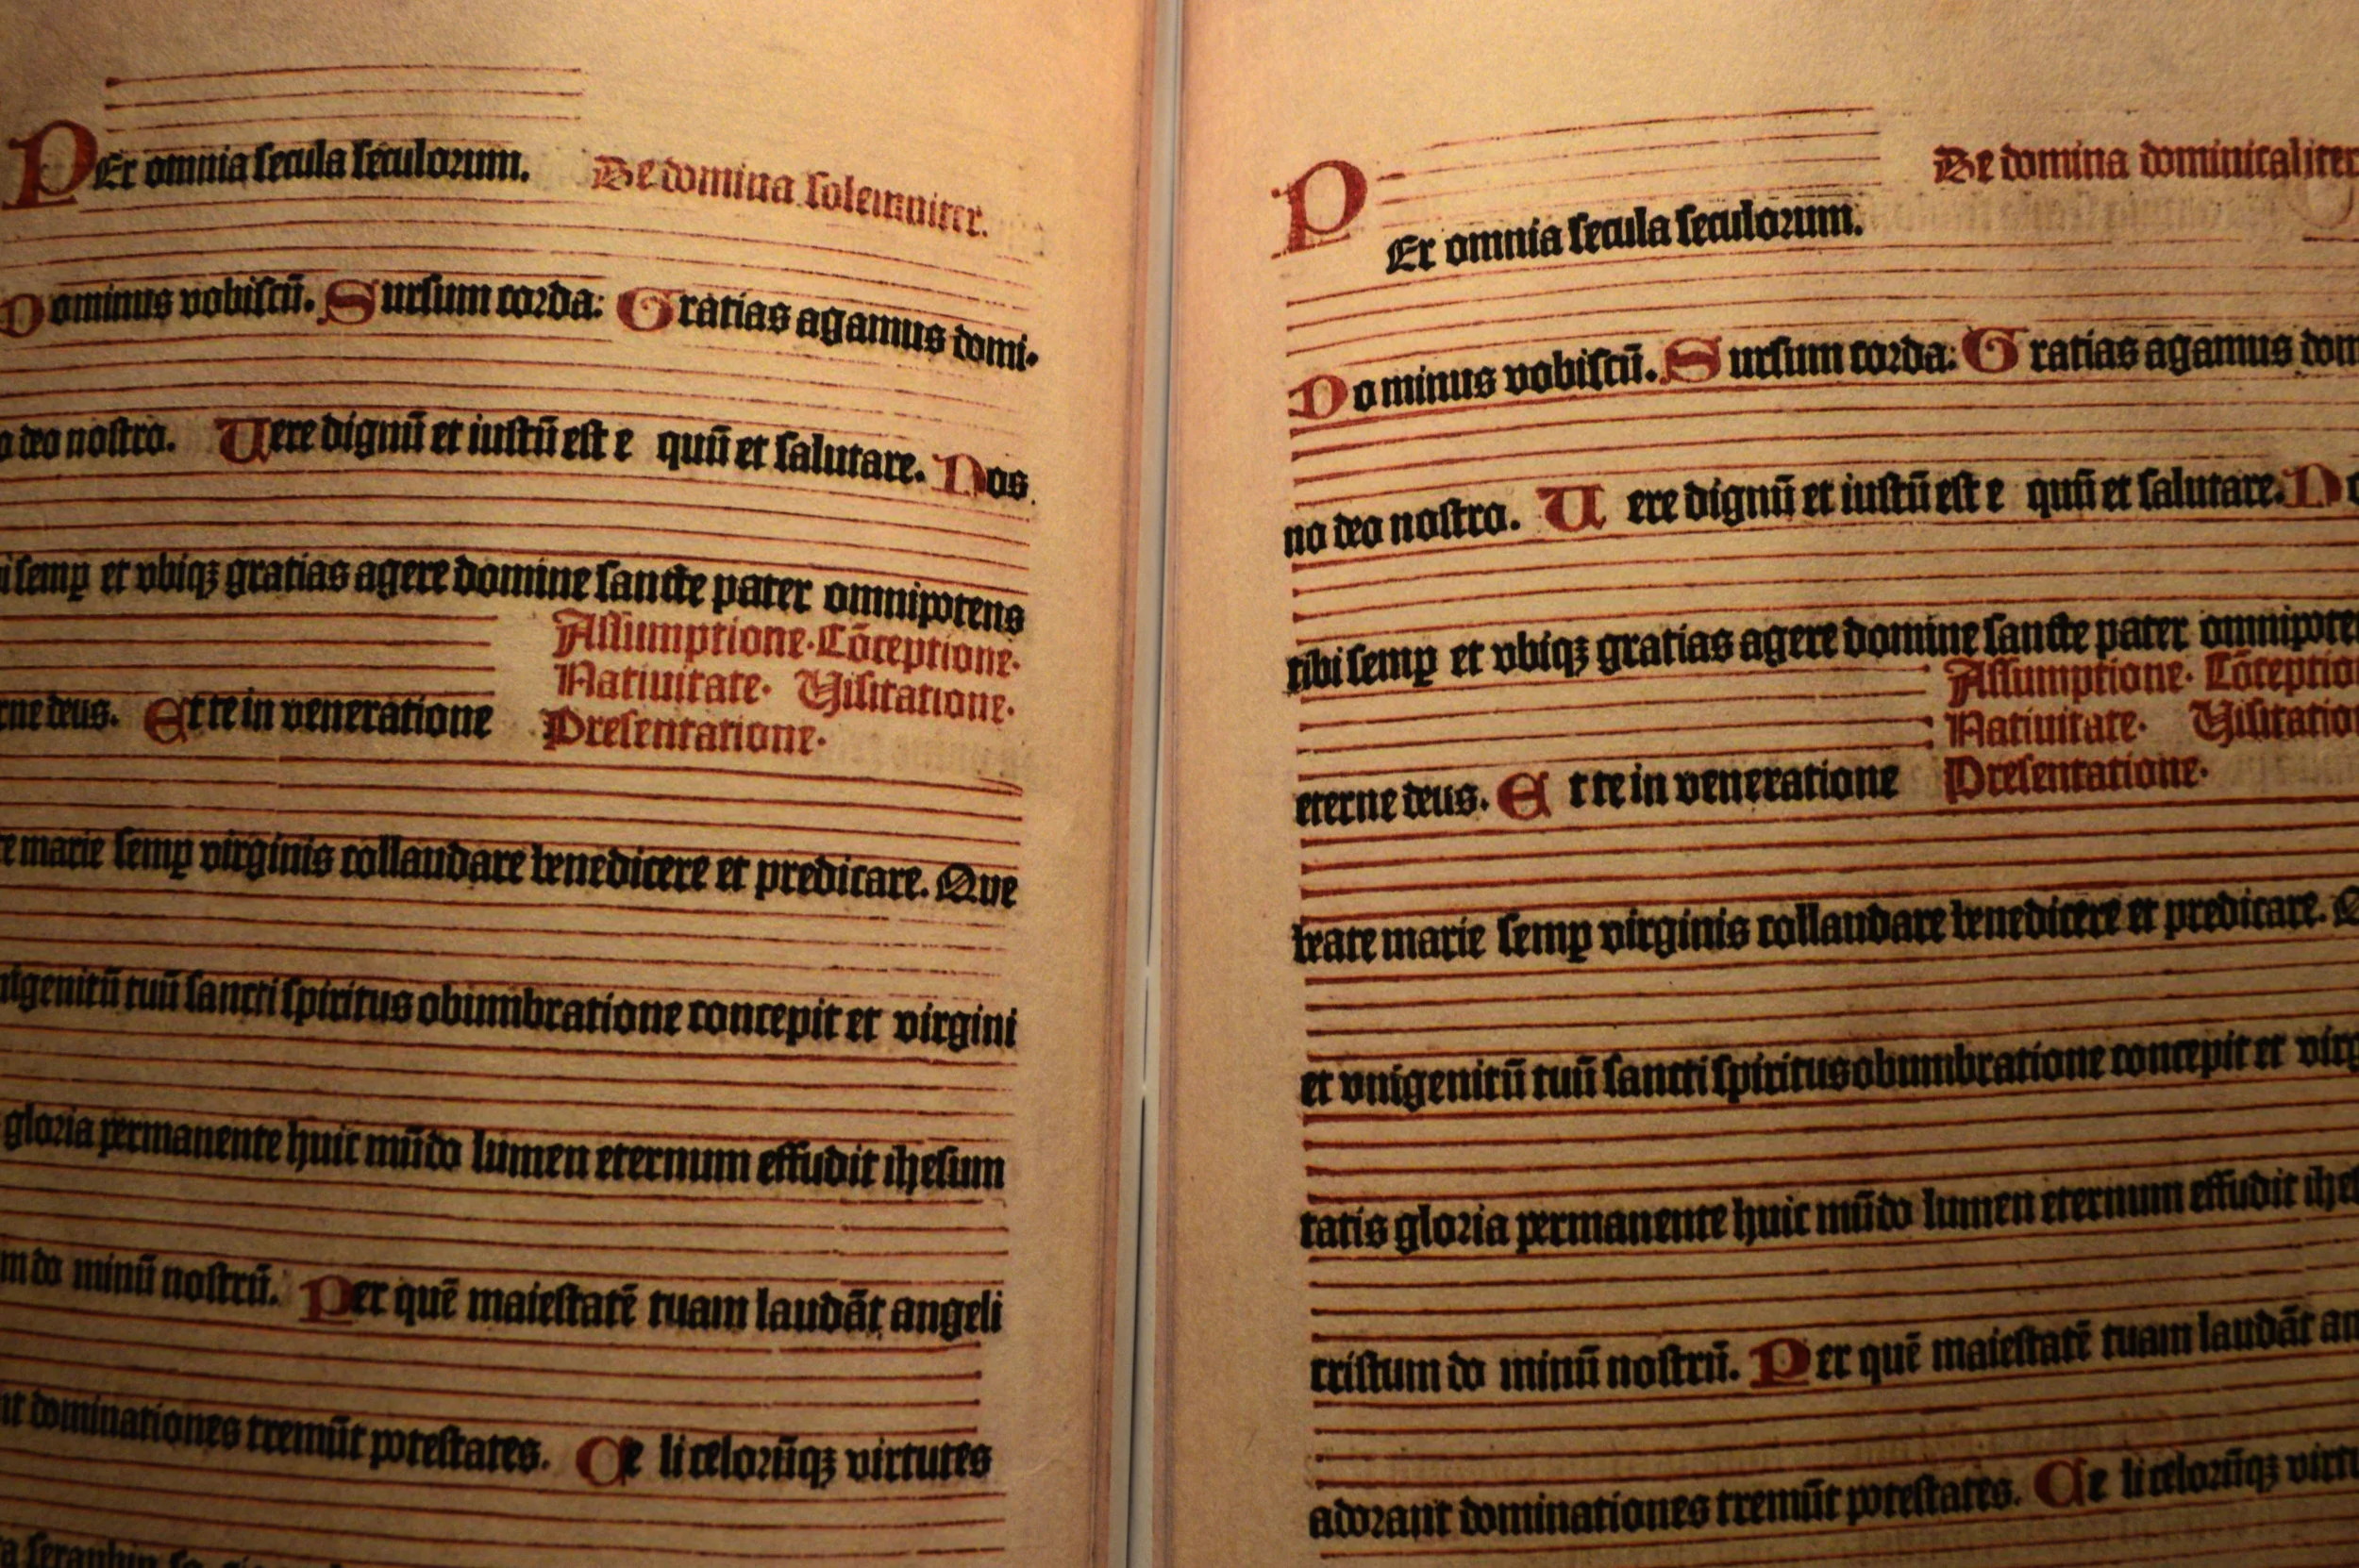 PEr omnia secula seculorum. De domina solemniter.
Dominus vobiscū. Sursum corda: Gratias agamus domi-
o deo nostro. Uere dignū et iustū est e quū et salutare. Nos
i semꝑ et vbiqꝫ gratias agere domine sancte pater omnipotens
Assumptione. Cōceptione.
Natiuitate. Uisitatione.
rne deus. Et te in veneratione Presentatione.
e marie semꝑ virginis collaudare benedicere et predicare. Que
nigenitū tuū sancti spiritus obumbratione concepit et virgini
gloria permanente huic mūdo lumen eternum effudit ihesum
m do minū nostrū. Per quē maiestatē tuam laudāt angeli
nt dominationes tremūt potestates. Ce li celorūqꝫ virtutes
a seraphin
PEr omnia secula seculorum. De domina dominicaliter
Dominus vobiscū. Sursum corda: Gratias agamus dom
no deo nostro. Uere dignū et iustū est e quū et salutare. No
tibi semꝑ et vbiqꝫ gratias agere domine sancte pater omnipote
Assumptione. Cōceptio
Natiuitate. Uisitatio
eterne deus. Et te in veneratione Presentatione.
beate marie semꝑ virginis collaudare benedicere et predicare. Q
et vnigenitū tuū sancti spiritus obumbratione concepit et virg
tatis gloria permanente huic mūdo lumen eternum effudit ihe
cristum do minū nostrū. Per quē maiestatē tuam laudāt an
adorant dominationes tremūt potestates. Ce li celorūqꝫ virtu